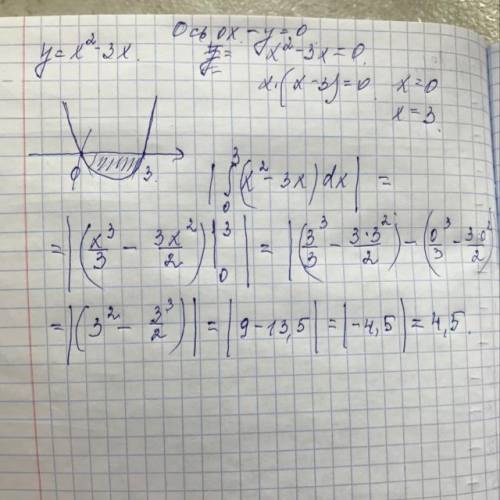 Ось ox - y=0
y=x²-3x. y= x²-3x=0.
x·(x-3)=0 x=0
x=3.
0 3.
|∫₀³(x²-3x)dx| =
=|(x³/3 - 3x²/2)|₀³| = |(3³/3 - 3·3²/2)-(0³/3-3·0²/2
=|(3²- 3³/2)| = |9-13,5| = |-4,5| = 4,5.